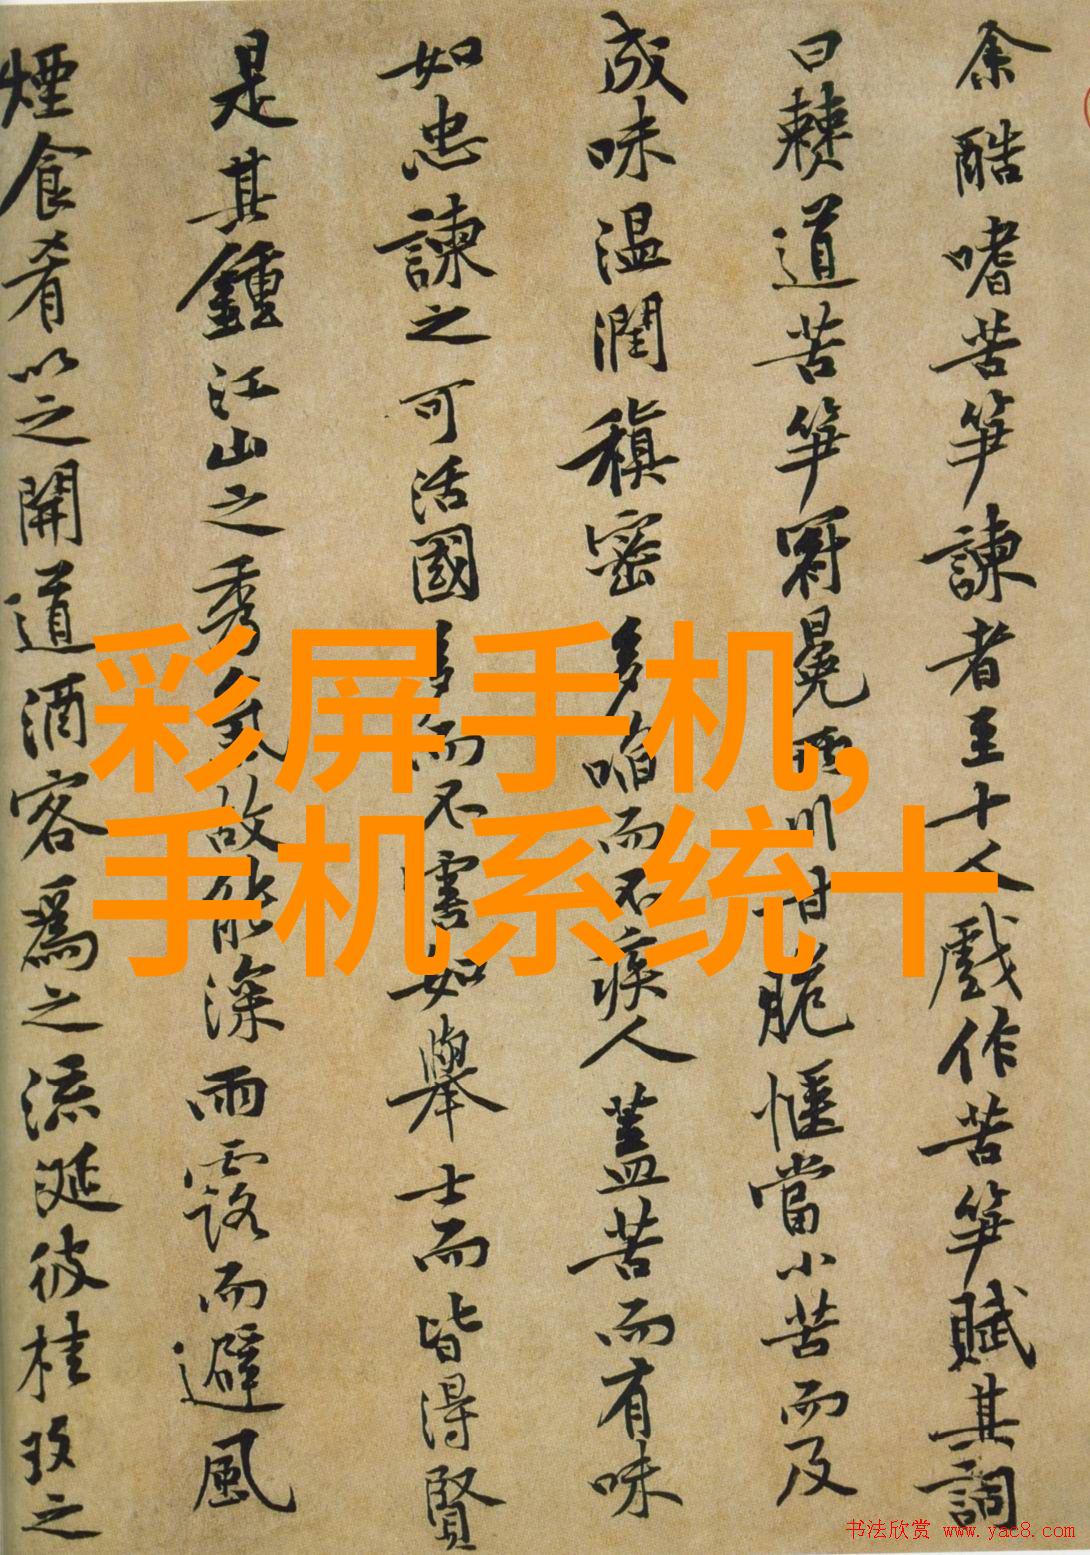 余酷嗜苦笋諫者至十人戲作苦笋賦其詞
曰僰道苦笋冠冕兩川甘脆愜當小苦而及
成味溫潤稹密多啗而不疾人蓋苦而有味
如忠諫之可活國多而不害如舉士而皆得賢
是其鍾江山之秀氣故能深雨露而避風
煙食肴以之開道酒客為之流涎彼桂玫之
彩屏手机,
手机系统十
书法欣赏 www.yac8.com